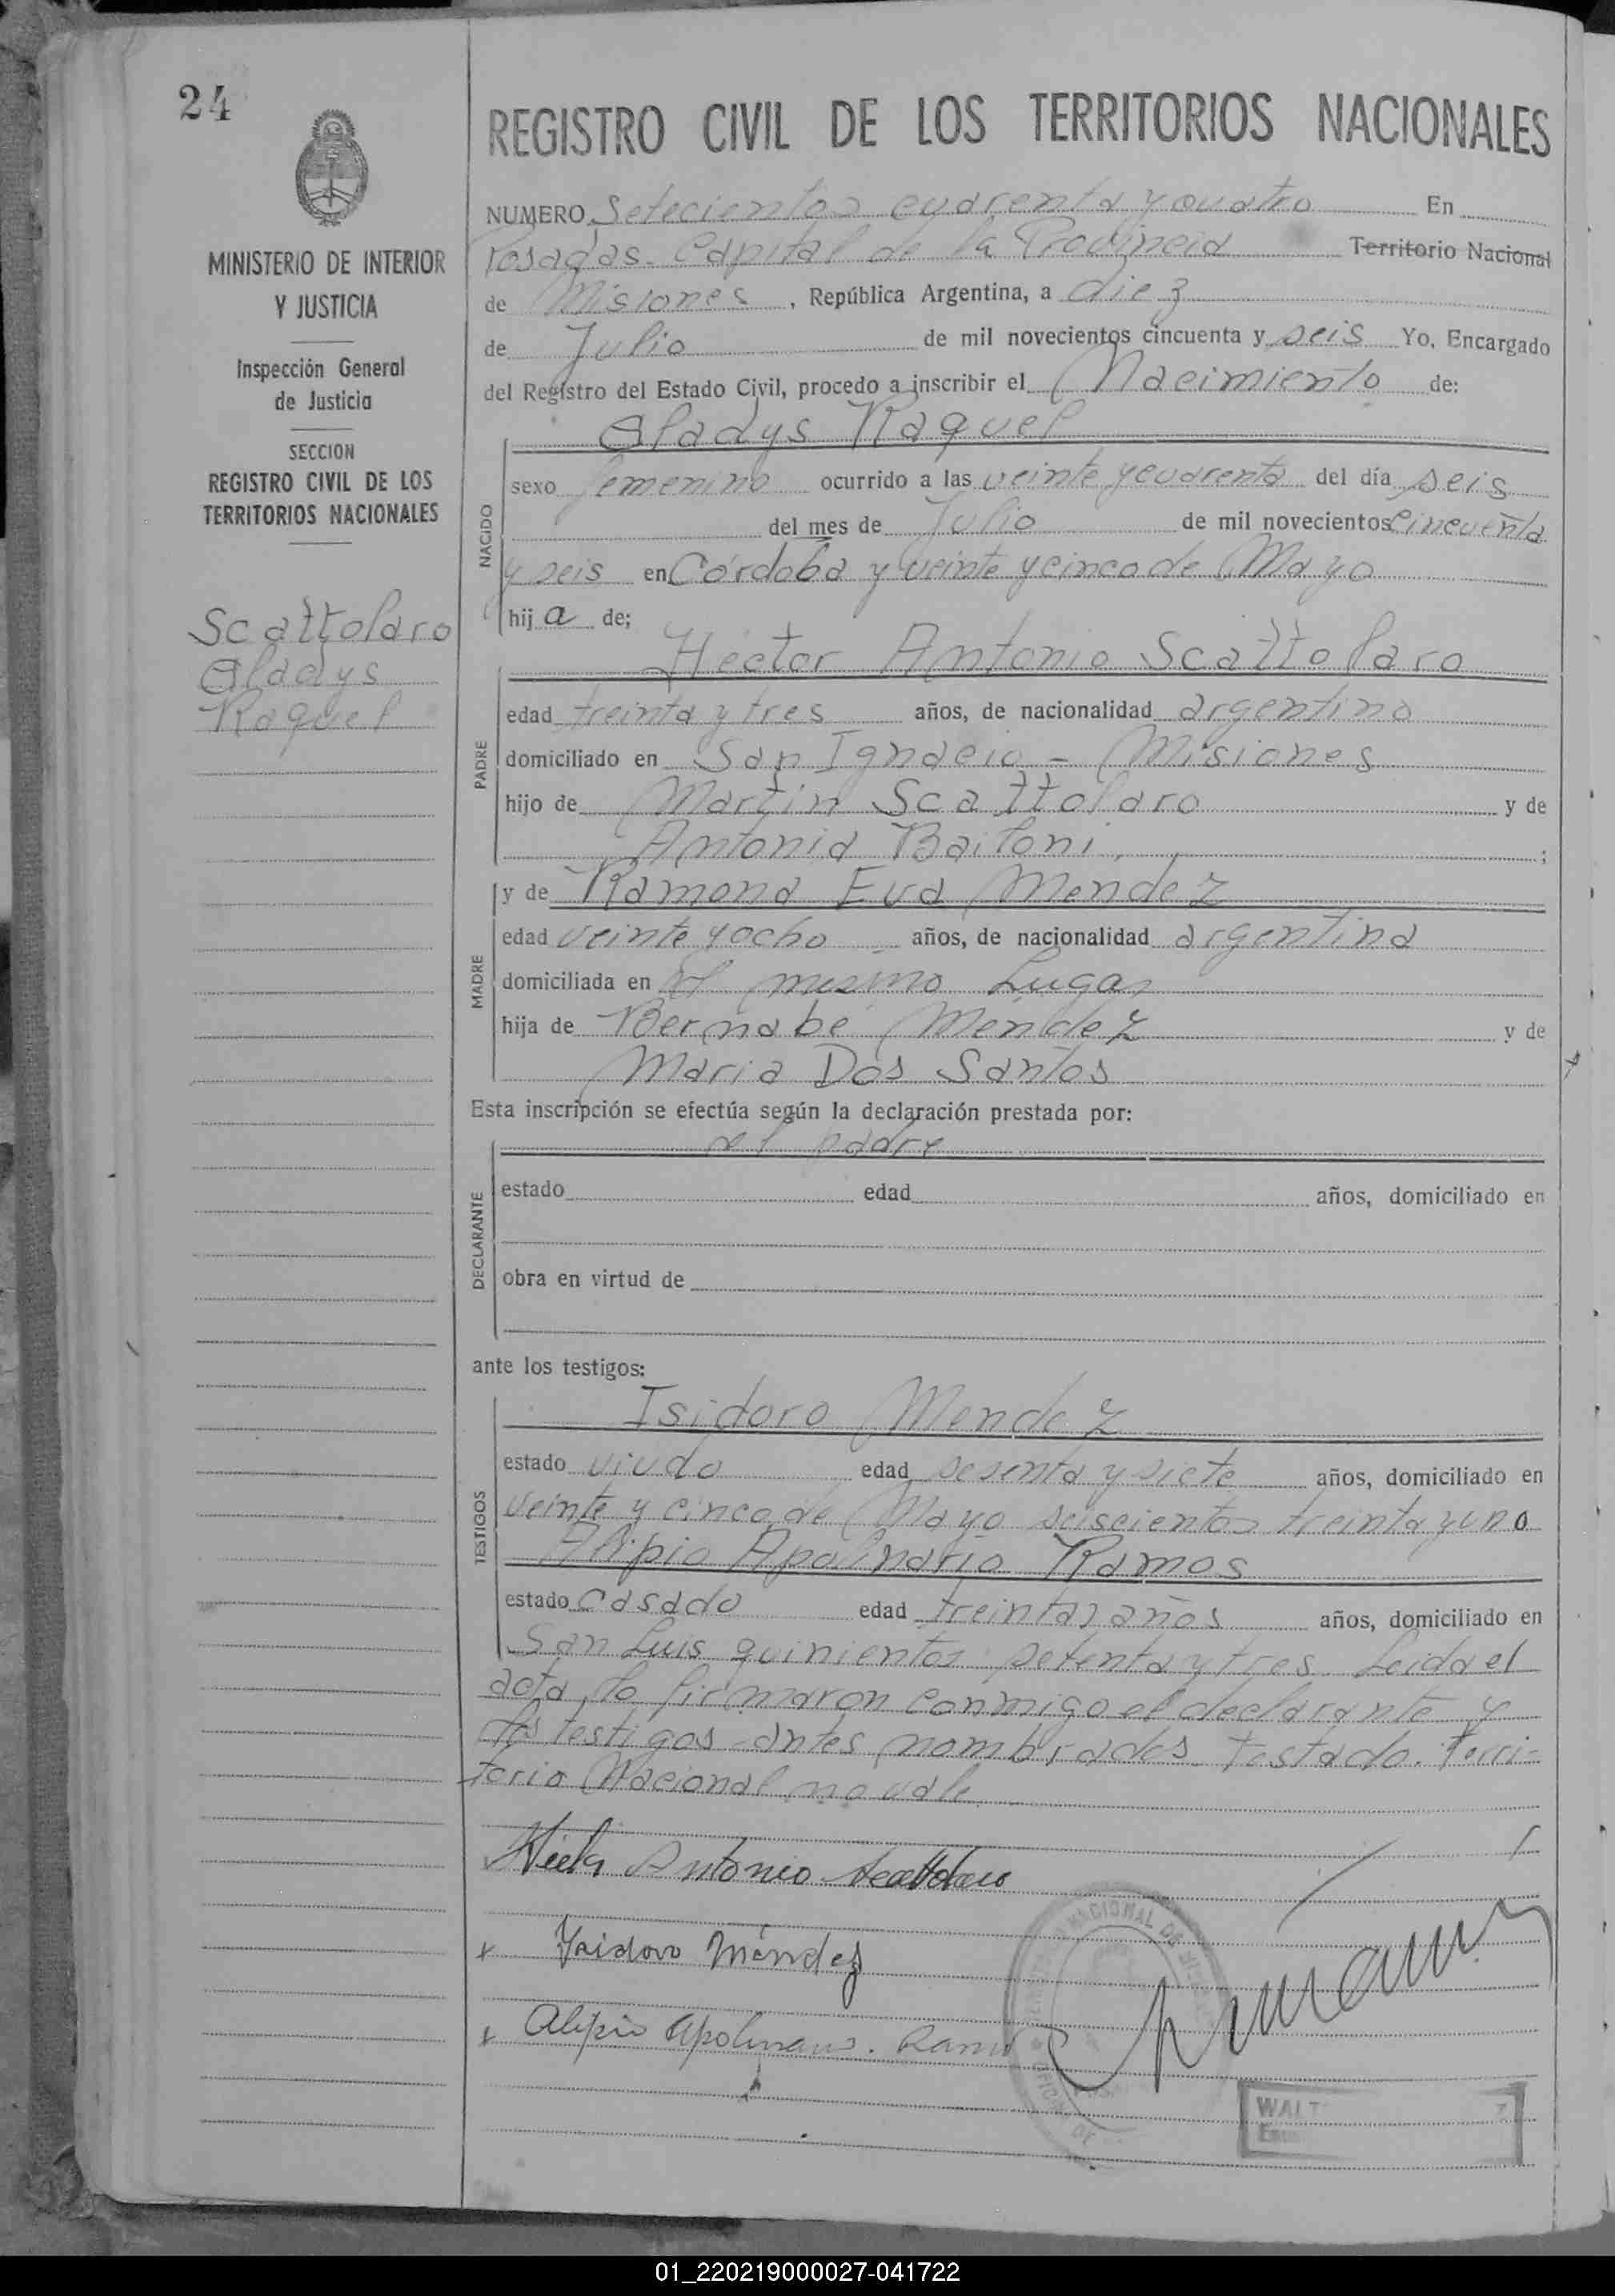 24
REGISTRO CIVIL DE LOS TERRITORIOS NACIONALES
MINISTERIO DE INTERIOR
Y JUSTICIA
Inspección General
de Justicia
SECCION
REGISTRO CIVIL DE LOS
TERRITORIOS NACIONALES
Scattolaro
Gladys
Raquel
NUMERO Setecientos cuarenta y cuatro En
Posadas. Capital de la Provincia Territorio Nacional
de Misiones, República Argentina, a diez
de Julio de mil novecientos cincuenta y seis Yo, Encargado
del Registro del Estado Civil, procedo a inscribir el Nacimiento de:
Gladys Raquel
NACIDO
sexo femenino ocurrido a las veinte y cuarenta del día seis
del mes de Julio de mil novecientos cincuenta
y seis en Córdoba y veinte y cinco de Mayo
hij a de;
Hector Antonio Scattolaro
PADRE
edad treinta y tres años, de nacionalidad argentino
domiciliado en San Ignacio - Misiones
hijo de Martin Scattolaro y de
Antonia Bailoni ;
y de Ramona Eva Mendez
MADRE
edad veinte y ocho años, de nacionalidad argentina
domiciliada en el mismo Lugar
hija de Bernabé Mendez y de
Maria Dos Santos
Esta inscripción se efectúa según la declaración prestada por:
el padre
DECLARANTE
estado edad años, domiciliado en
obra en virtud de
ante los testigos:
Isidoro Mendez
TESTIGOS
estado viudo edad sesenta y siete años, domiciliado en
veinte y cinco de Mayo seiscientos treinta y uno
Alipio Apolinario Ramos
estado casado edad treinta años años, domiciliado en
San Luis quinientos setenta y tres. Leida el
acta, la firmaron conmigo el declarante y
los testigos antes nombrados. Testado. Terri-
torio Nacional no vale
Antonio Scattolaro
x Isidoro Méndez
x Alipio Apolinario. Ramos
NACIONAL DE
WALT
01_220219000027-041722